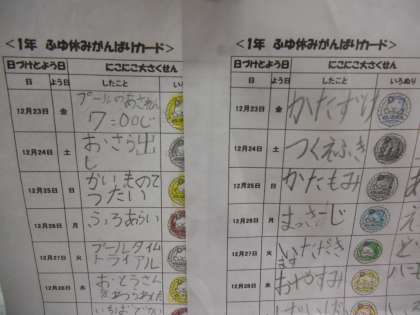 <1年 ふゆ休みがんばりカード>
日づけとよう日 にこにこ大さくせん
日 よう日 したこと いろ
12月23日 金 プールのあされん
7:00じ
12月24日 土 おさら出
し
12月25日 日 かいもののて
つだい
12月26日 月 ふろあらい
12月27日 火 プールタイム
トライアル
12月28日 水 おとうさん
<1年 ふゆ休みがんばりカード>
日づけとよう日 にこにこ大さくせん
日 よう日 したこと いろぬり
12月23日 金 かたずけ
12月24日 土 つくえふき
12月25日 日 かたもみ
12月26日 月
12月27日 火 いただき
ます
12月28日 水 おやすみ